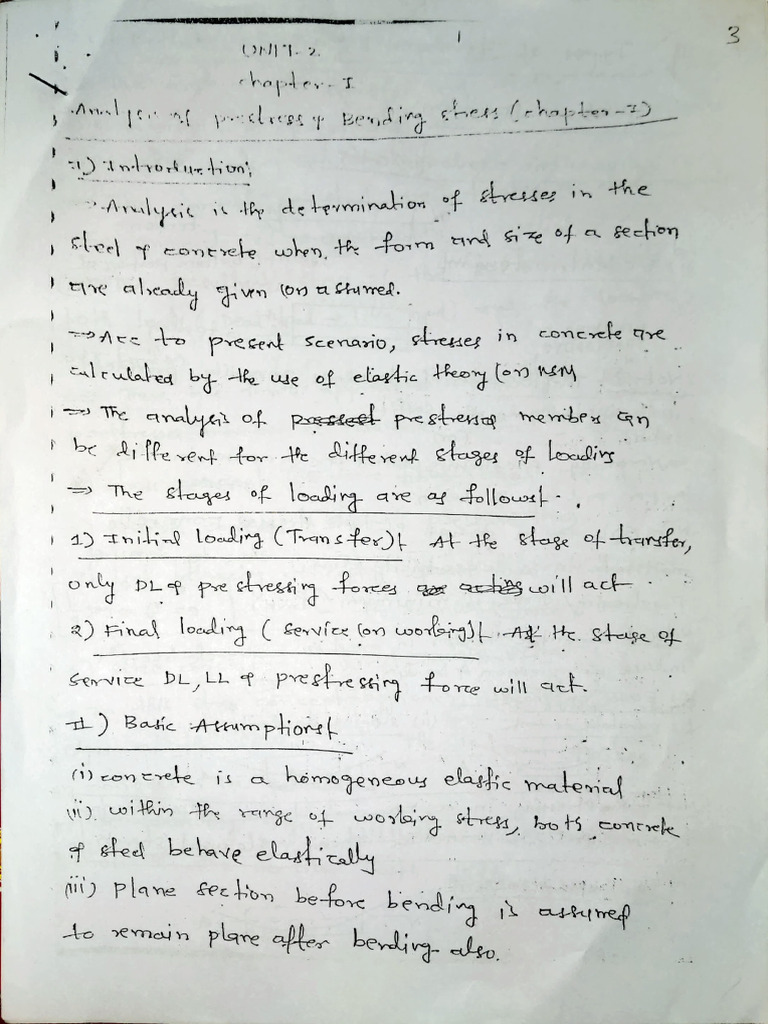 3
UNIT-2
chapter-I
Analysis of prestress & Bending stress (chapter-I)
I) Introduction:
→ Analysis is the determination of stresses in the
steel & concrete when the form and size of a section
are already given (or) assumed.
⇒ Acc to present scenario, stresses in concrete are
calculated by the use of elastic theory (or) WSM
⇒ The analysis of prestress members can
be different for the different stages of loading
⇒ The stages of loading are as follows:-
1) Initial loading (Transfer):- At the stage of transfer,
only DL & prestressing forces will act.
2) Final loading (service (or) working):- At the stage of
service DL, LL & prestressing force will act.
II) Basic Assumptions:-
(i) concrete is a homogeneous elastic material
(ii) within the range of working stress, both concrete
& steel behave elastically
(iii) plane section before bending is assumed
to remain plane after bending also.